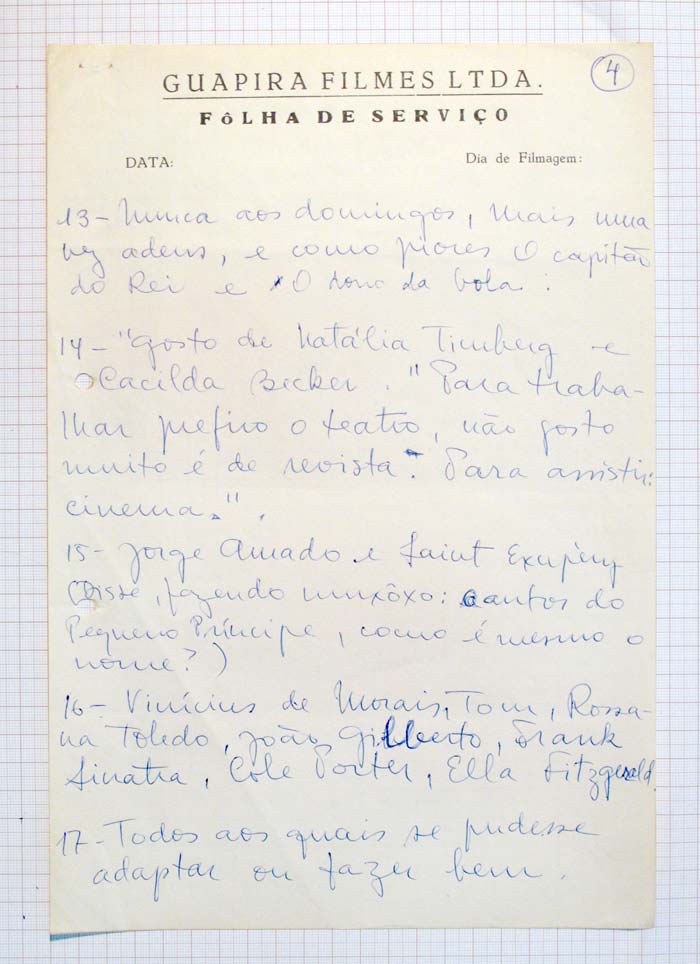 4
GUAPIRA FILMES LTDA.
FÔLHA DE SERVIÇO
DATA:
Dia de Filmagem:
13- Nunca aos domingos, Mais uma
vez adeus, e como piores O capitão
do Rei e O dono da bola.
14- "Gosto de Natália Timberg e
Cacilda Becker." Para traba-
lhar prefiro o teatro, não gosto
muito é de revista. Para assistir:
cinema.".
15- Jorge Amado e Saint Exupéry
(Disse, fazendo muxôxo: autor do
Pequeno Príncipe, como é mesmo o
nome?)
16- Vinícius de Morais, Tom, Rossa-
na Toledo, João Gilberto, Frank
Sinatra, Cole Porter, Ella Fitzgerald.
17- Todos aos quais se pudesse
adaptar ou fazer bem.